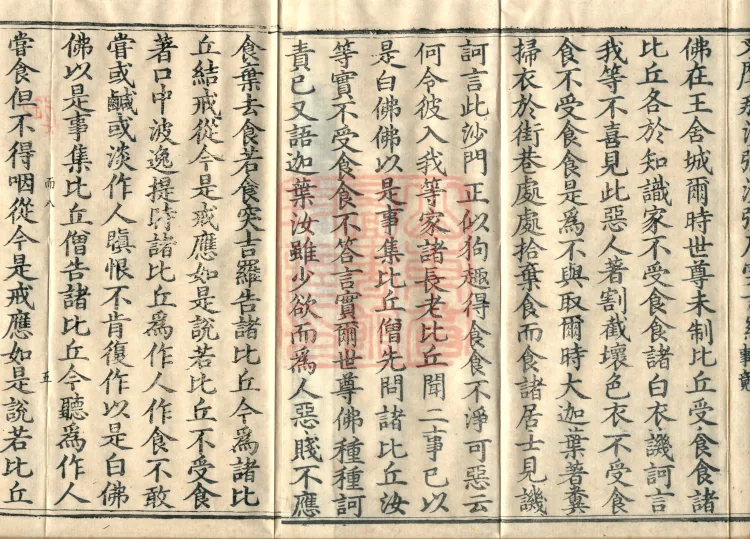 佛在王舍城爾時世尊未制比丘受食食諸
比丘各於知識家不受食食諸白衣譏訶言
我等不喜見此惡人著割截壞色衣不受食
食不受食食是為不與取爾時大迦葉著糞
掃衣於街巷處處拾棄食而食諸居士見譏
訶言此沙門正似狗趣得食食不淨可惡云
何令彼入我等家諸長老比丘聞二事已以
是白佛佛以是事集比丘僧先問諸比丘汝
等實不受食食不答言實爾世尊佛種種訶
責已又語迦葉汝雖少欲而為人惡賤不應
食棄去食若食突吉羅告諸比丘今為諸比
丘結戒從今是戒應如是說若比丘不受食
著口中波逸提時諸比丘為作人作食不敢
嘗或鹹或淡作人瞋恨不肯復作以是白佛
佛以是事集比丘僧告諸比丘今聽為作人
而八 五
嘗食但不得咽從今是戒應如是說若比丘